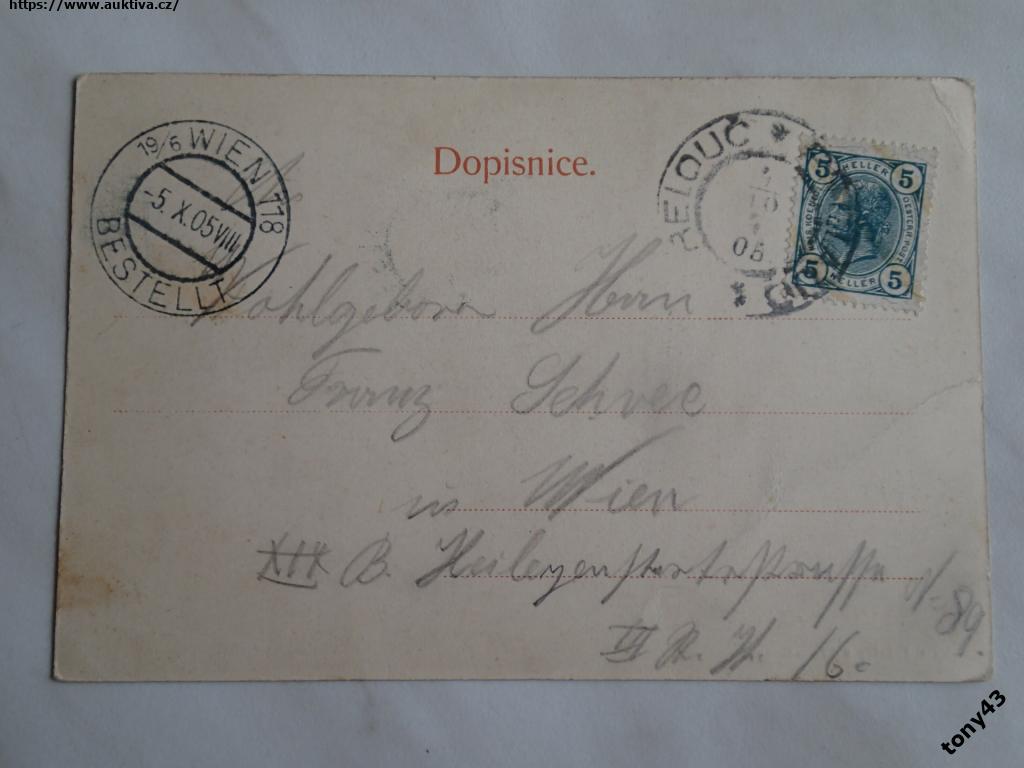 https://www.auktiva.cz/
19/6 WIEN 118
-5. X. 05 VIII
BESTELLT
Dopisnice.
ŘELOUČ
05
5 HELLER 5
5 HELLER 5
Wohlgeboren Herrn
Franz Schvec
in Wien
XIX B. Heiligenstadtstrasse
89.
II 16.
tony43